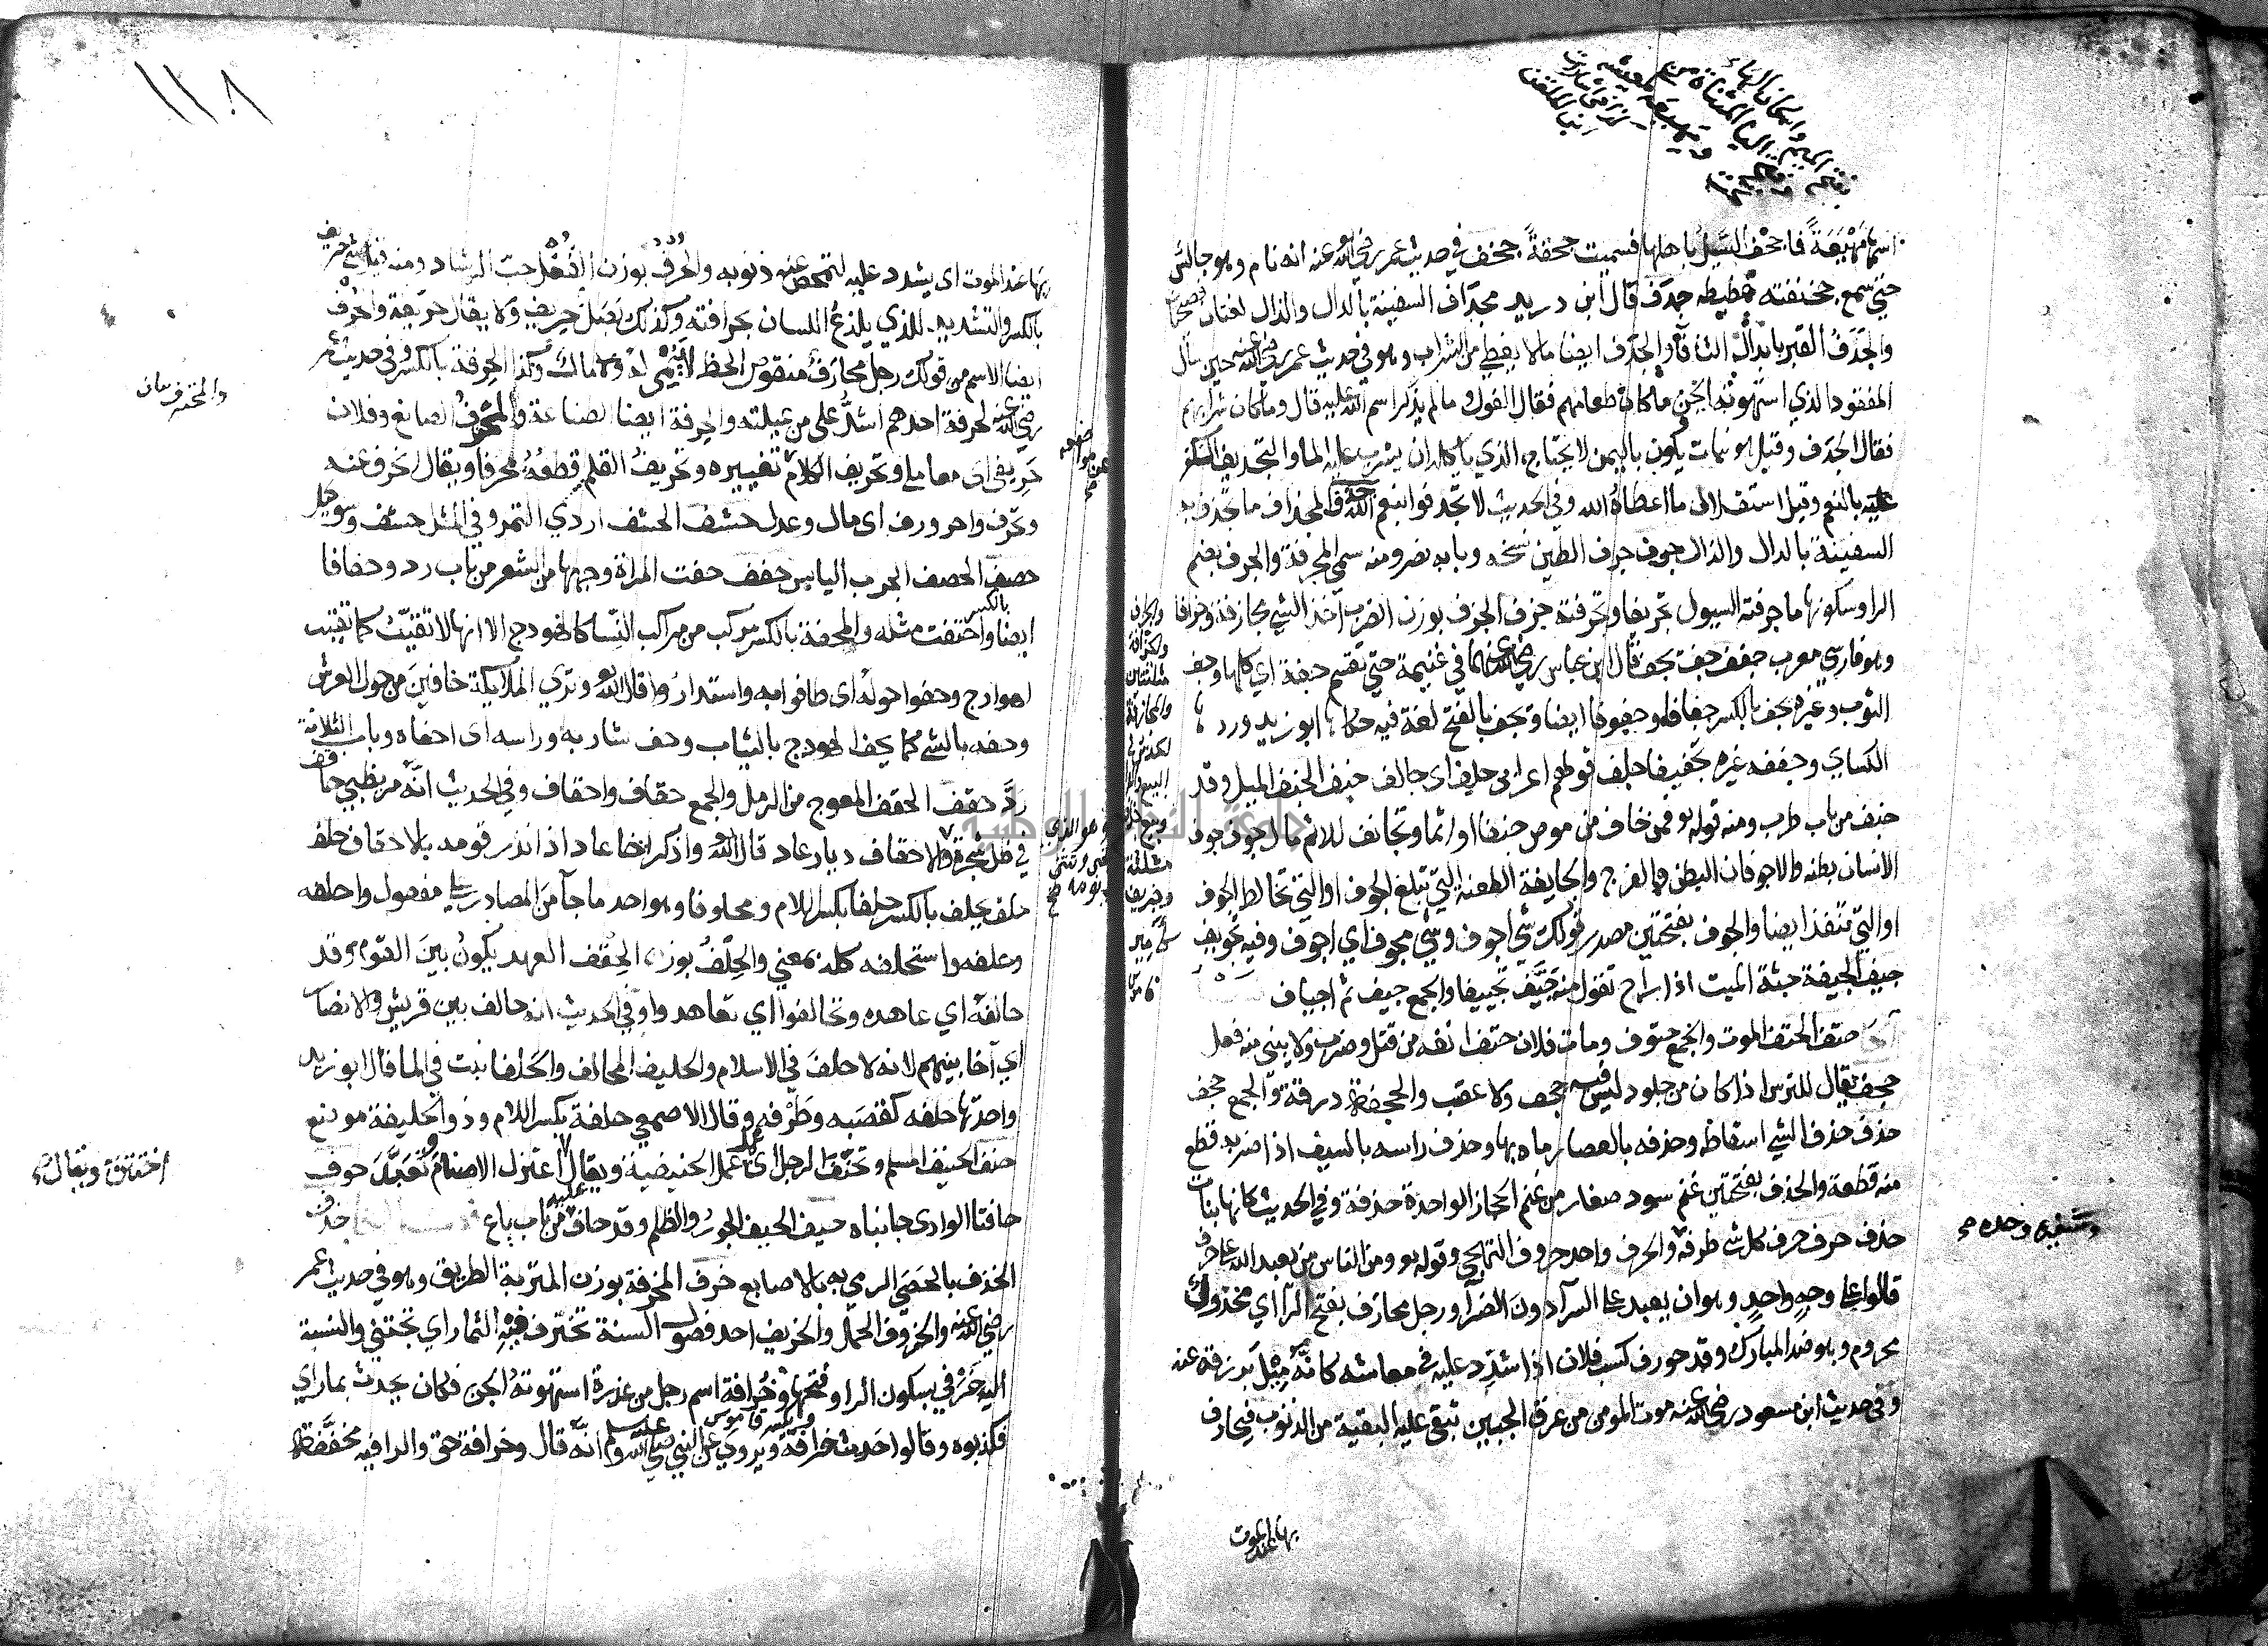 بفتح الميم واسكان الهاء
وفتح الياء المثناة من
اسمها مَهْيَعَةَ فاجحف السَّيلُ باهلها فسميت جحفةً جخف في حديث عمر رضي الله عنه انه نام وهو جالس
حتى سمع جخيفته غطيطه جدف قال ابن دريد مجداف السفينة بالدال والذال لغتان فصيحتان
والجَدَفُ القبر بابدال الثاء فاء والجدف ايضا ما لا يغطي من الشراب وهو في حديث عمر رضي الله عنه حين سال
المفقود الذي استهوته الجن ما كان طعامهم فقال الفول وما لم يذكر اسم الله عليه قال وما كان شرابهم
فقال الجدف وقيل هو نبات يكون باليمن لا يحتاج الذي ياكله ان يشرب عليه الماء والتجديف الكفر
بالنعم وقيل استقلال ما اعطاه الله وفي الحديث لا تجدفوا بنعم الله جذف المجذاف ما تجذف به
السفينة بالدال والذال جرف جرف الطين نسخه وبابه نصر ومنه سمي المجرفة والجرف بضم
الرا وسكونها ما جرفته السيول تجريفا وتجرفته جزف الجزف بوزن الضرب اخذ الشيء مجازفة وجزافا
وهو فارسي معرب جفف جف يجف قال ابن عباس رضي الله عنهما في غنيمة حتى تقسم جفة اي كلها وجف
الثوب وغيره يجف بالكسر جفافا وجفوفا ايضا ويجف بالفتح لغة فيه حكاها ابو زيد وردها
الكساي وجففه غيره تجفيفا جلف قولهم اعرابي جلف اي جاف جنف الجنف الميل وقد
جنف من باب طرب ومنه قوله تعالى فمن خاف من موص جنفا او اثما وتجانف للاثم مال جوف جوف
الانسان بطنه والاجوفان البطن والفرج والجايفة الطعنة التي تبلغ الجوف او التي تخالط الجوف
او التي تنفذ ايضا والجوف بفتحتين مصدر قولك شي اجوف وشي مجوف اي اجوف وفيه تجويف
جيف الجيفة جثة الميت اذا اراح تقول منه جيَّف تجييفا والجمع جيف ثم اجياف
حتف الحتف الموت والجمع حتوف ومات فلان حتف انفه من غير قتل وضرب ولا يبنى منه فعل
حجف يقال للترس اذا كان من جلود ليس فيه خشب ولا عقب حجفة ودرقة والجمع حجف
حذف حذف الشي اسقاطه وحذفه بالعصا رماه بها وحذف راسه بالسيف اذا ضربه فقطع
منه قطعة والحذف بفتحتين غنم سود صغار من غنم الحجاز الواحدة حذفة وفي الحديث كانها بنات
حذف حرف حرف كل شي طرفه والحرف واحد حروف التهجي وقوله تعالى ومن الناس من يعبد الله على حرف
قالوا على وجه واحد وهو ان يعبد على السرآ دون الضرآ ورجل محارف بفتح الرآ اي محدود
محروم وهو ضد المبارك وقد حورف كسب فلان اذا شدد عليه في معاشه كانَّه مِيْلَ برزقه عنه
وفي حديث ابن مسعود رضي الله عنه موت المومن من عرق الجبين تبقى عليه البقية من الذنوب فيحارف
بها عند الموت
وشفيره وحده صح
١١٨
بها عند الموت اي يشدد عليه لتمحص عنه ذنوبه والحُرْفُ بوزن القُفْل حبّ الرشاد ومنه قيل شي حِرِّيف
بالكسر والتشديد للذي يلذع اللسان بحرافته وكذلك بَصَل حِرِّيف ولا يقال حَرِّيفة والحُرْف
ايضا الاسم من قولك رجل محارَف منقوص الحظ لا ينمى له مال وكذا الحِرفة بالكسر وفي حديث عمر
رضي الله عنه لحرفة احدهم اشدُّ علي من عيلته والحِرفة ايضا الصناعة والمحترف الصانع وفلان
حَرِيفي اي معاملي وتحريف الكلام تغييره وتحريفُ القلم قَطُّهُ محرفا ويقال انحرف عنه
وتحرف واحرورف اي مال وعدل حشف الحشف اردي التمر وفي المثل احشفا وسو كيلة
حصف الحصف الجرب اليابس حفف حفت المراة وجهها من الشعر من باب رد وحفافا
بالكسر
ايضا واحتفت مثله والمحفة بالكسر مركب من مراكب النساء كالهودج الا انها لا تقبّب كما تقبب
الهوادج وحفوا حوله اي طافوا به واستداروا قال الله تعالى وترى الملايكة حافينَ من حول العرش
وحفه بالشي كما يحف الهودج بالثياب وحف شاربه وراسه اي احفاه وباب الثلاثة
ردَّ حقف الحقف المعوج من الرمل والجمع حقاف واحقاف وفي الحديث انه مر بظبي حاقف
في ظل شجرة والاحقاف ديار عاد قال الله تعالى واذكر اخا عاد اذ انذر قومه بالاحقاف حلف
حلف يحلف بالكسر حلفا بكسر اللام ومحلوفا وهو احد ما جآ من المصادر على مفعول واحلفه
وحلفه واستحلفه كله بمعني والحِلْفُ بوزن الحِقْف العهد يكون بين القوم وقد
حالفه اي عاهده وتحالفوا اي تعاهدوا وفي الحديث انه حالف بين قريش والانصار
اي آخا بينهم لانه لا حلف في الاسلام والحليف المحالف والحلفا نبت في الما قال ابو زيد
واحدتها حلفه كقصَبه وطَرَفه وقال الاصمعي حلفة بكسر اللام وذو الحليفة موضع
حنف الحنيف المسلم وتحنَّف الرجل اي عمل عمل الحنيفية ويقال اعتزل الاصنام وتعبَّدَ حوف
حافتا الوادي جانباه حيف الحيف الجورُ والظلم وقد حاف عليه من باب باع خذف
الخذف بالحَصَى الرمي به بالاصابع خرف المخرفة بوزن المتربة الطريق وهو في حديث عمر
رضي الله عنه والخروف الحمل والخريف احد فصول السنة تخترف فيه الثمار اي تجتني والنسبة
اليه خَرْفي بسكون الرا وفتحها وخُرافة اسم رجل من عذرة استهوته الجن فكان يحدث بما راى
فكذبوه وقالوا حديث خرافة ويروي عن النبي صلى الله عليه وسلم انه قال وخرافة حق والرا فيه مخفَّفة